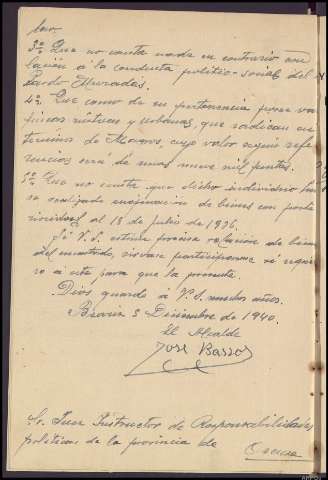 3º Que no consta nada en contrario con re
lación a la conducta político-social del
Pardo Muradás.
4º Que como de su pertenencia posee va
fincas rústicas y urbanas, que radican en
término de cuyo valor según refe
rencias será de unas nueve mil pesetas.
5º Que no consta que dicho individuo
realizado enajenación de bienes con poste
rioridad al 18 de Julio de 1936.
Si V.S. estima precisa relación de bienes
del encartado, sírvase participarme
a este para que la presente.
Dios guarde a V.S. muchos años.
5 Diciembre de 1940.
El Alcalde
José
Sr. Juez Instructor de Responsabilidades
políticas de la provincia de
Orense